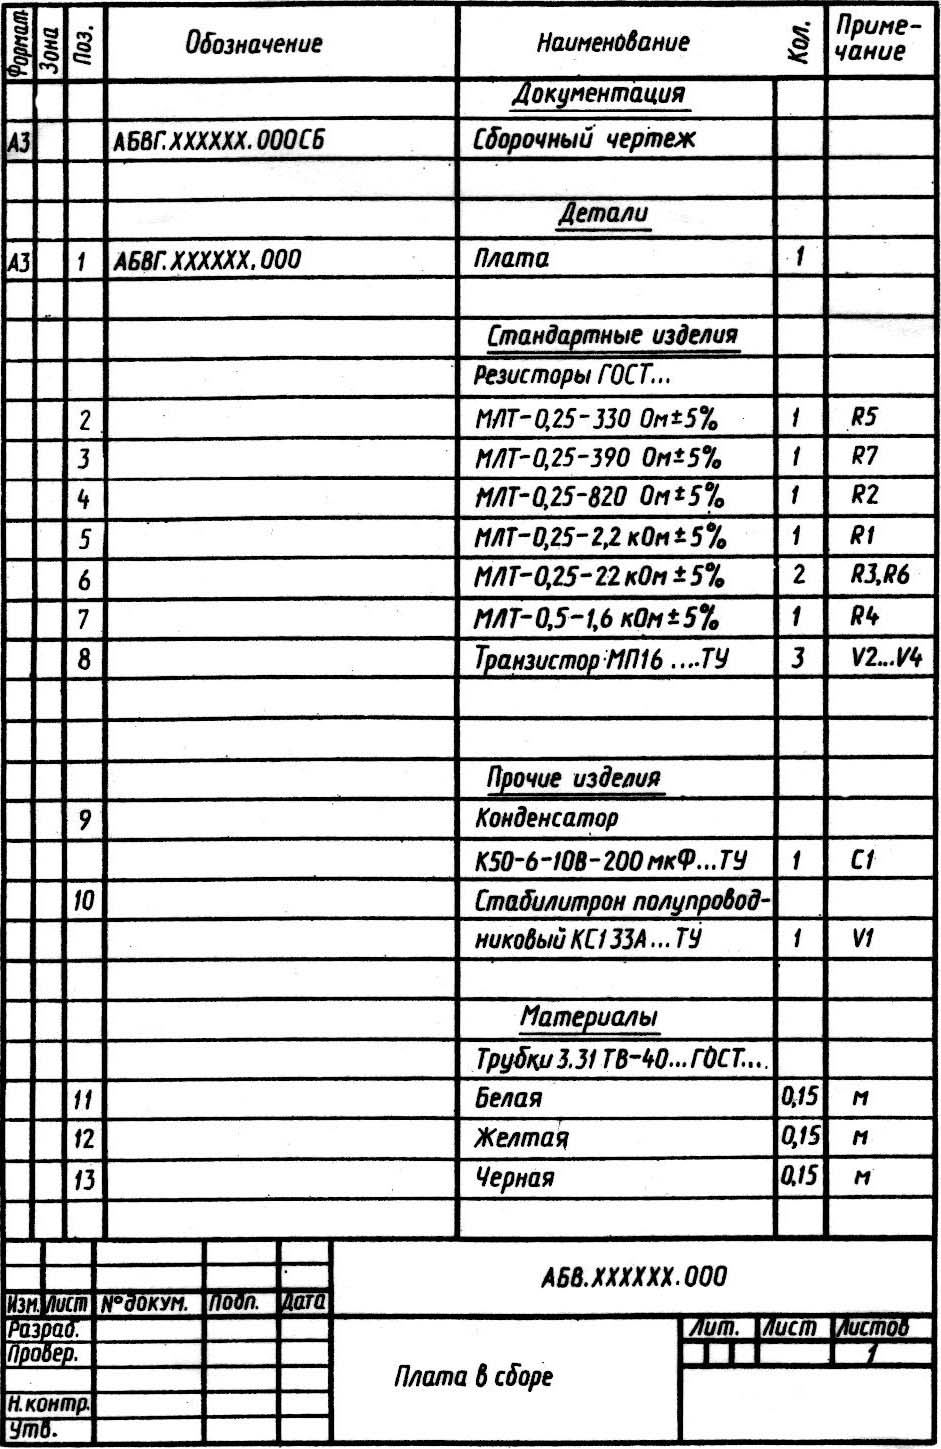 Формат Зона Поз. Обозначение Наименование Кол. Приме-
чание
Документация
А3 АБВГ.XXXXXX.000СБ Сборочный чертеж
Детали
А3 1 АБВГ.XXXXXX.000 Плата 1
Стандартные изделия
Резисторы ГОСТ...
2 МЛТ-0,25-330 Ом±5% 1 R5
3 МЛТ-0,25-390 Ом±5% 1 R7
4 МЛТ-0,25-820 Ом±5% 1 R2
5 МЛТ-0,25-2,2 кОм±5% 1 R1
6 МЛТ-0,25-22 кОм±5% 2 R3,R6
7 МЛТ-0,5-1,6 кОм±5% 1 R4
8 Транзистор МП16 ....ТУ 3 V2...V4
Прочие изделия
9 Конденсатор
К50-6-10В-200 мкФ...ТУ 1 С1
10 Стабилитрон полупровод-
никовый КС133А...ТУ 1 V1
Материалы
Трубки 3.31 ТВ-40...ГОСТ...
11 Белая 0,15 м
12 Желтая 0,15 м
13 Черная 0,15 м
АБВ.XXXXXX.000
Изм. Лист №докум. Подп. Дата
Разраб. Лит. Лист Листов
Провер. 1
Плата в сборе
Н.контр.
Утв.